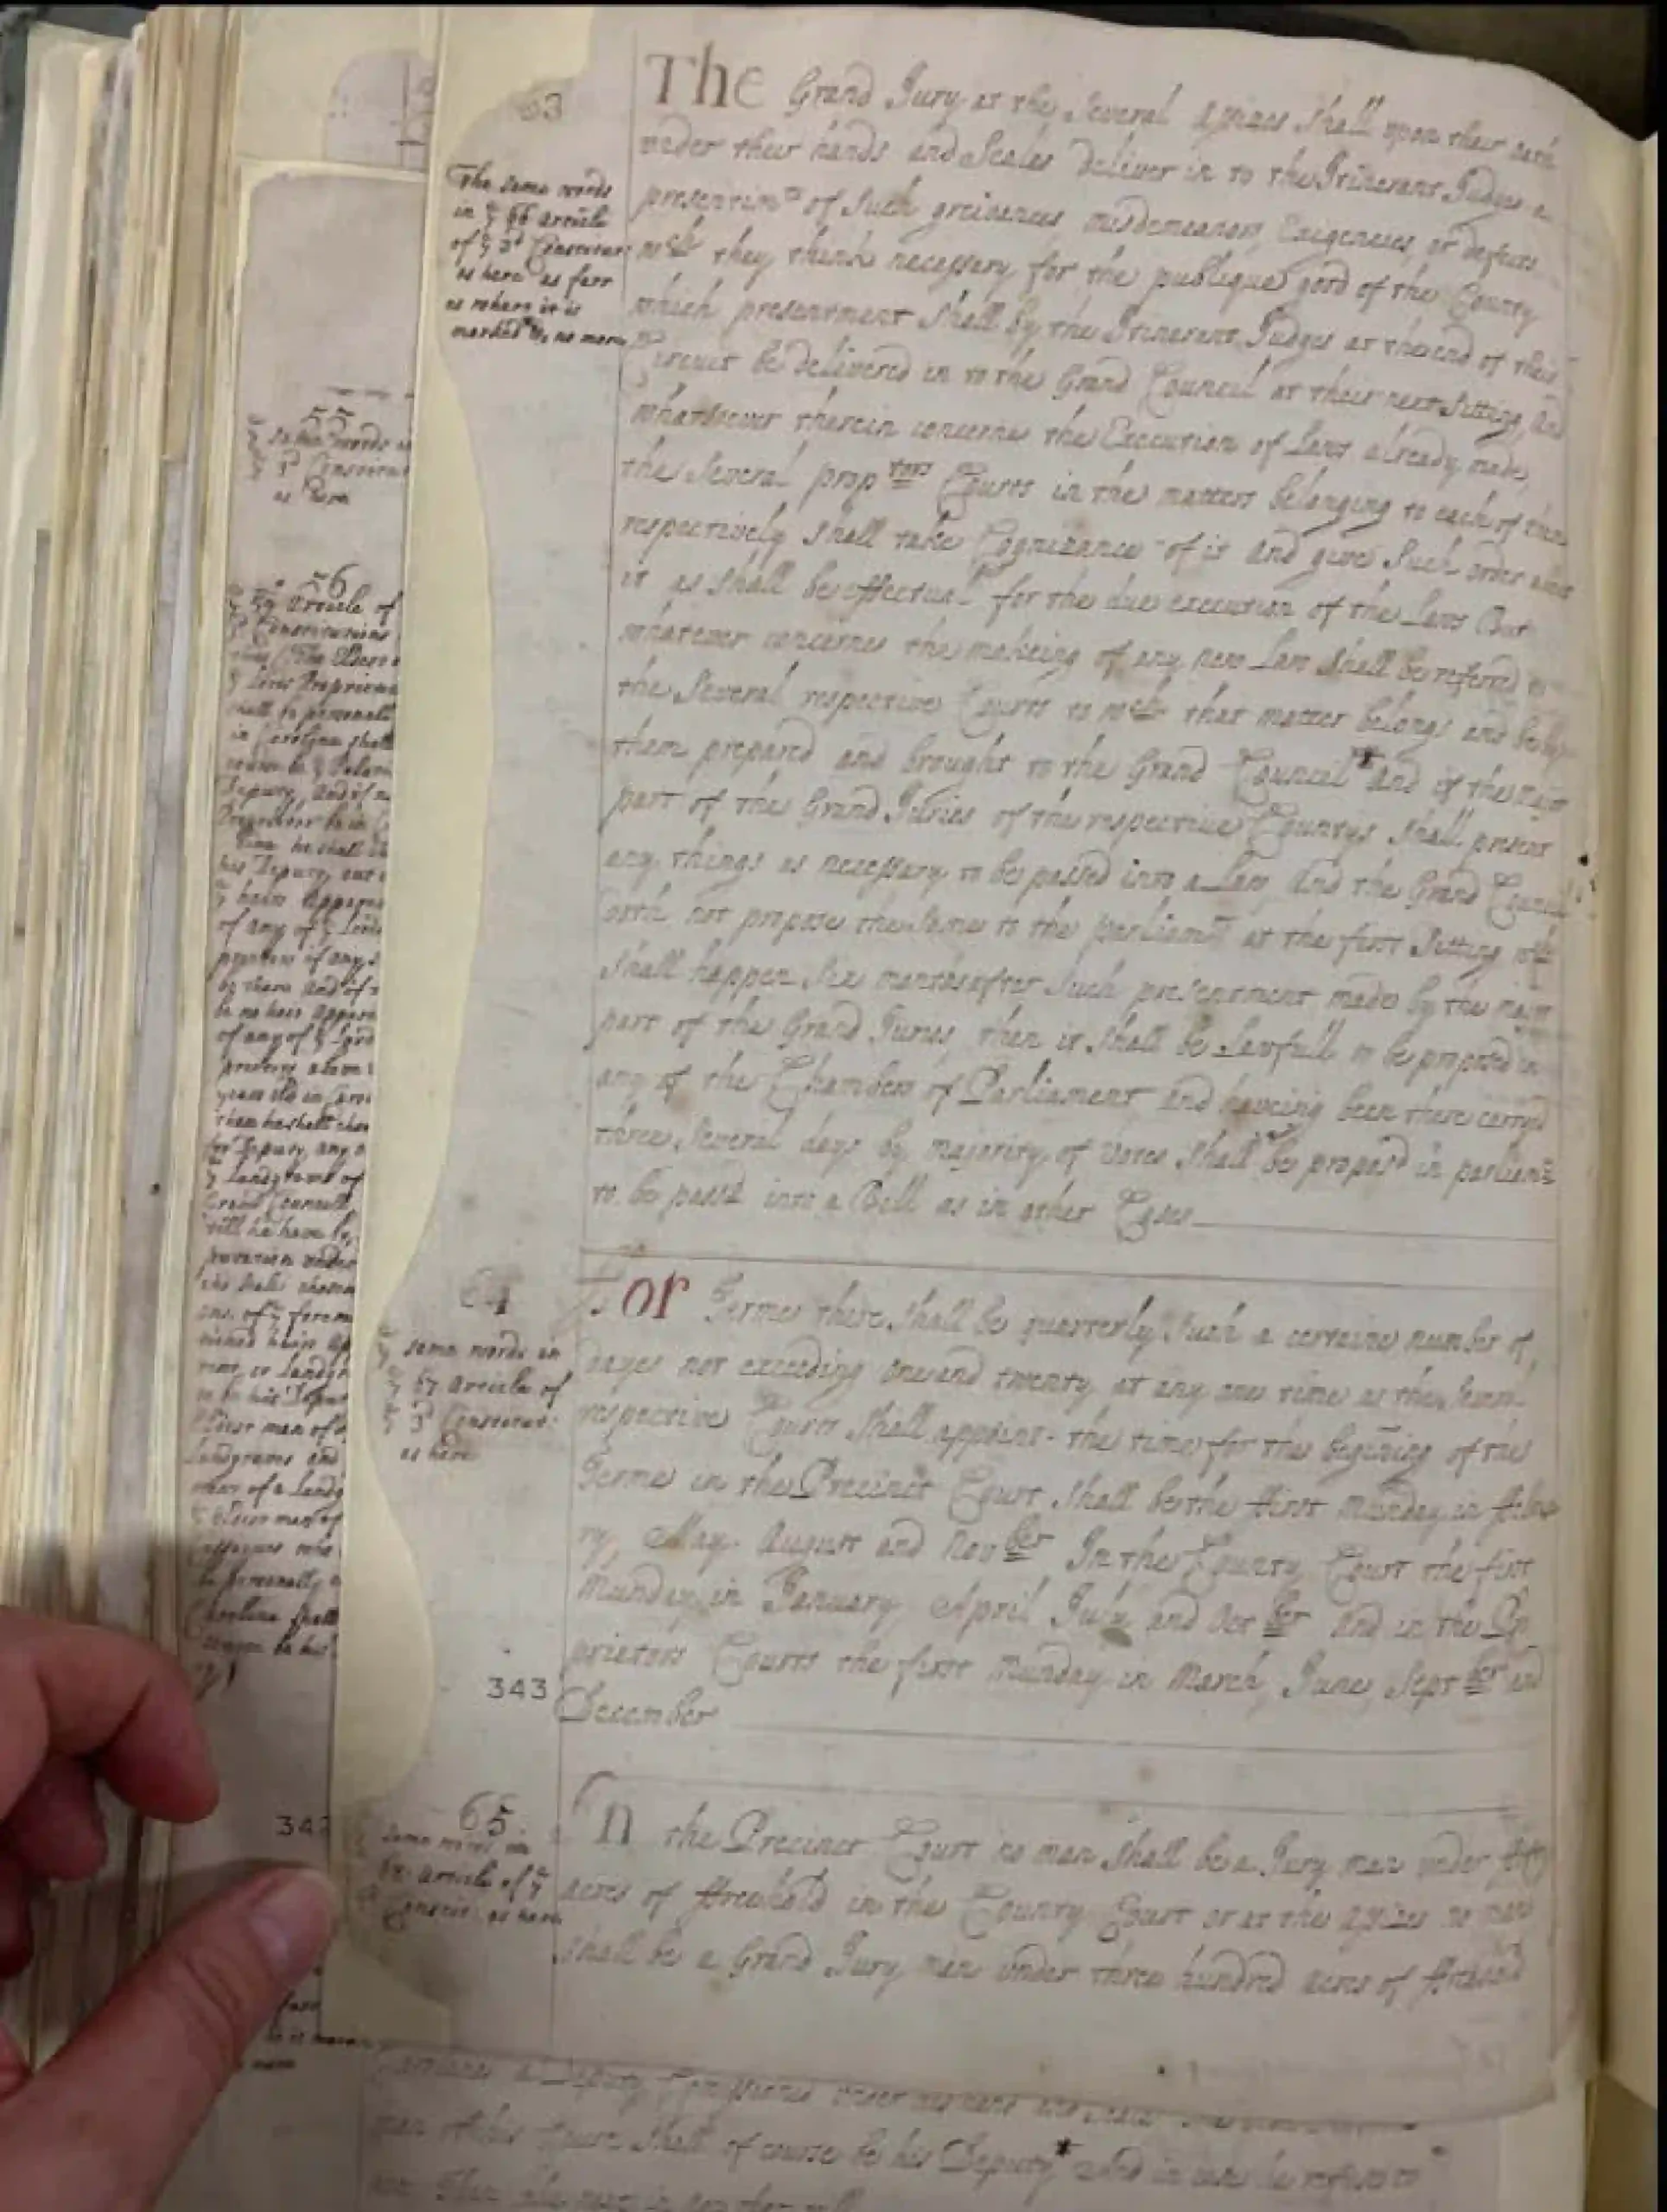 63
The Grand Jury at the Several Assizes Shall upon their oath
under their hands and Seales deliver in to the Itinerant Judges a
presentmt of Such greivances misdemeanors Exigencies, or defects
wch they think necessary for the publique good of the County
which presentment Shall by the Itinerant Judges at the end of their
Circuit be delivered in to the Grand Council at their next Sitting, And
whatsoever therein concernes the Execution of Laws already made,
the Several proptors Courts in the matters belonging to each of them
respectively shall take Cognizance of it and give Such order about
it as shall be effectual for the due execution of the Laws But
whatever concernes the makeing of any new Law shall be referred to
the Several respective Courts to wch that matter belongs and be by
them prepared and brought to the Grand Council And if the major
part of the Grand Juries of the respective Countys shall present
any things as necessary to be passed into a Law, and the Grand Council
doth not propose the Same to the parliamt at the first Sitting wch
shall happen Six months after Such presentment made by the major
part of the Grand Juries, then it shall be Lawfull to be proposed in
any of the Chambers of Parliament and haveing been there carryd
three Several days by majority of Votes shall be proposd in parliamt
to be passd into a Bill as in other Cases
The same words
in ye 66 article
of ye 3d Constitut:
as here as farr
as where it is
marked no more
64
For Termes there shall be quarterly Such a certaine number of
dayes not exceeding one and twenty at any one time as the Severl
respective Courts shall appoint. the time for the begining of the
Terme in the Precinct Court shall be the first Munday in Febru
ry, May August and Novber In the County Court the first
Munday in January, April July and Octber and in the Pro
prietors Courts the first Munday in March, June Septber and
December
same words in
ye 67 article of
ye 3d Constitut:
as here
343
65
In the Precinct Court no man shall be a Jury man under fifty
acres of freehold in the County Court or at the Assizes no man
shall be a Grand Jury man under three hundred acres of freehold
same words in
article of ye
Constit: as here
55
same words in
3d Constitut
as here
56
ye 59 article of
Constitutions
in Carolina shall
Deputy, and if no
his Deputy, out
ye heire Apparent
of any of ye Lords
by them and if
be no heire Apparent
of any of ye Lords
years old in Caro
then he shall choose
for Deputy, any
ye Landgraves of
Grand Councell
till he have by
Landgraves and
be personally
Carolina shall
man of his Court shall of course be his Deputy And in case he refuse to